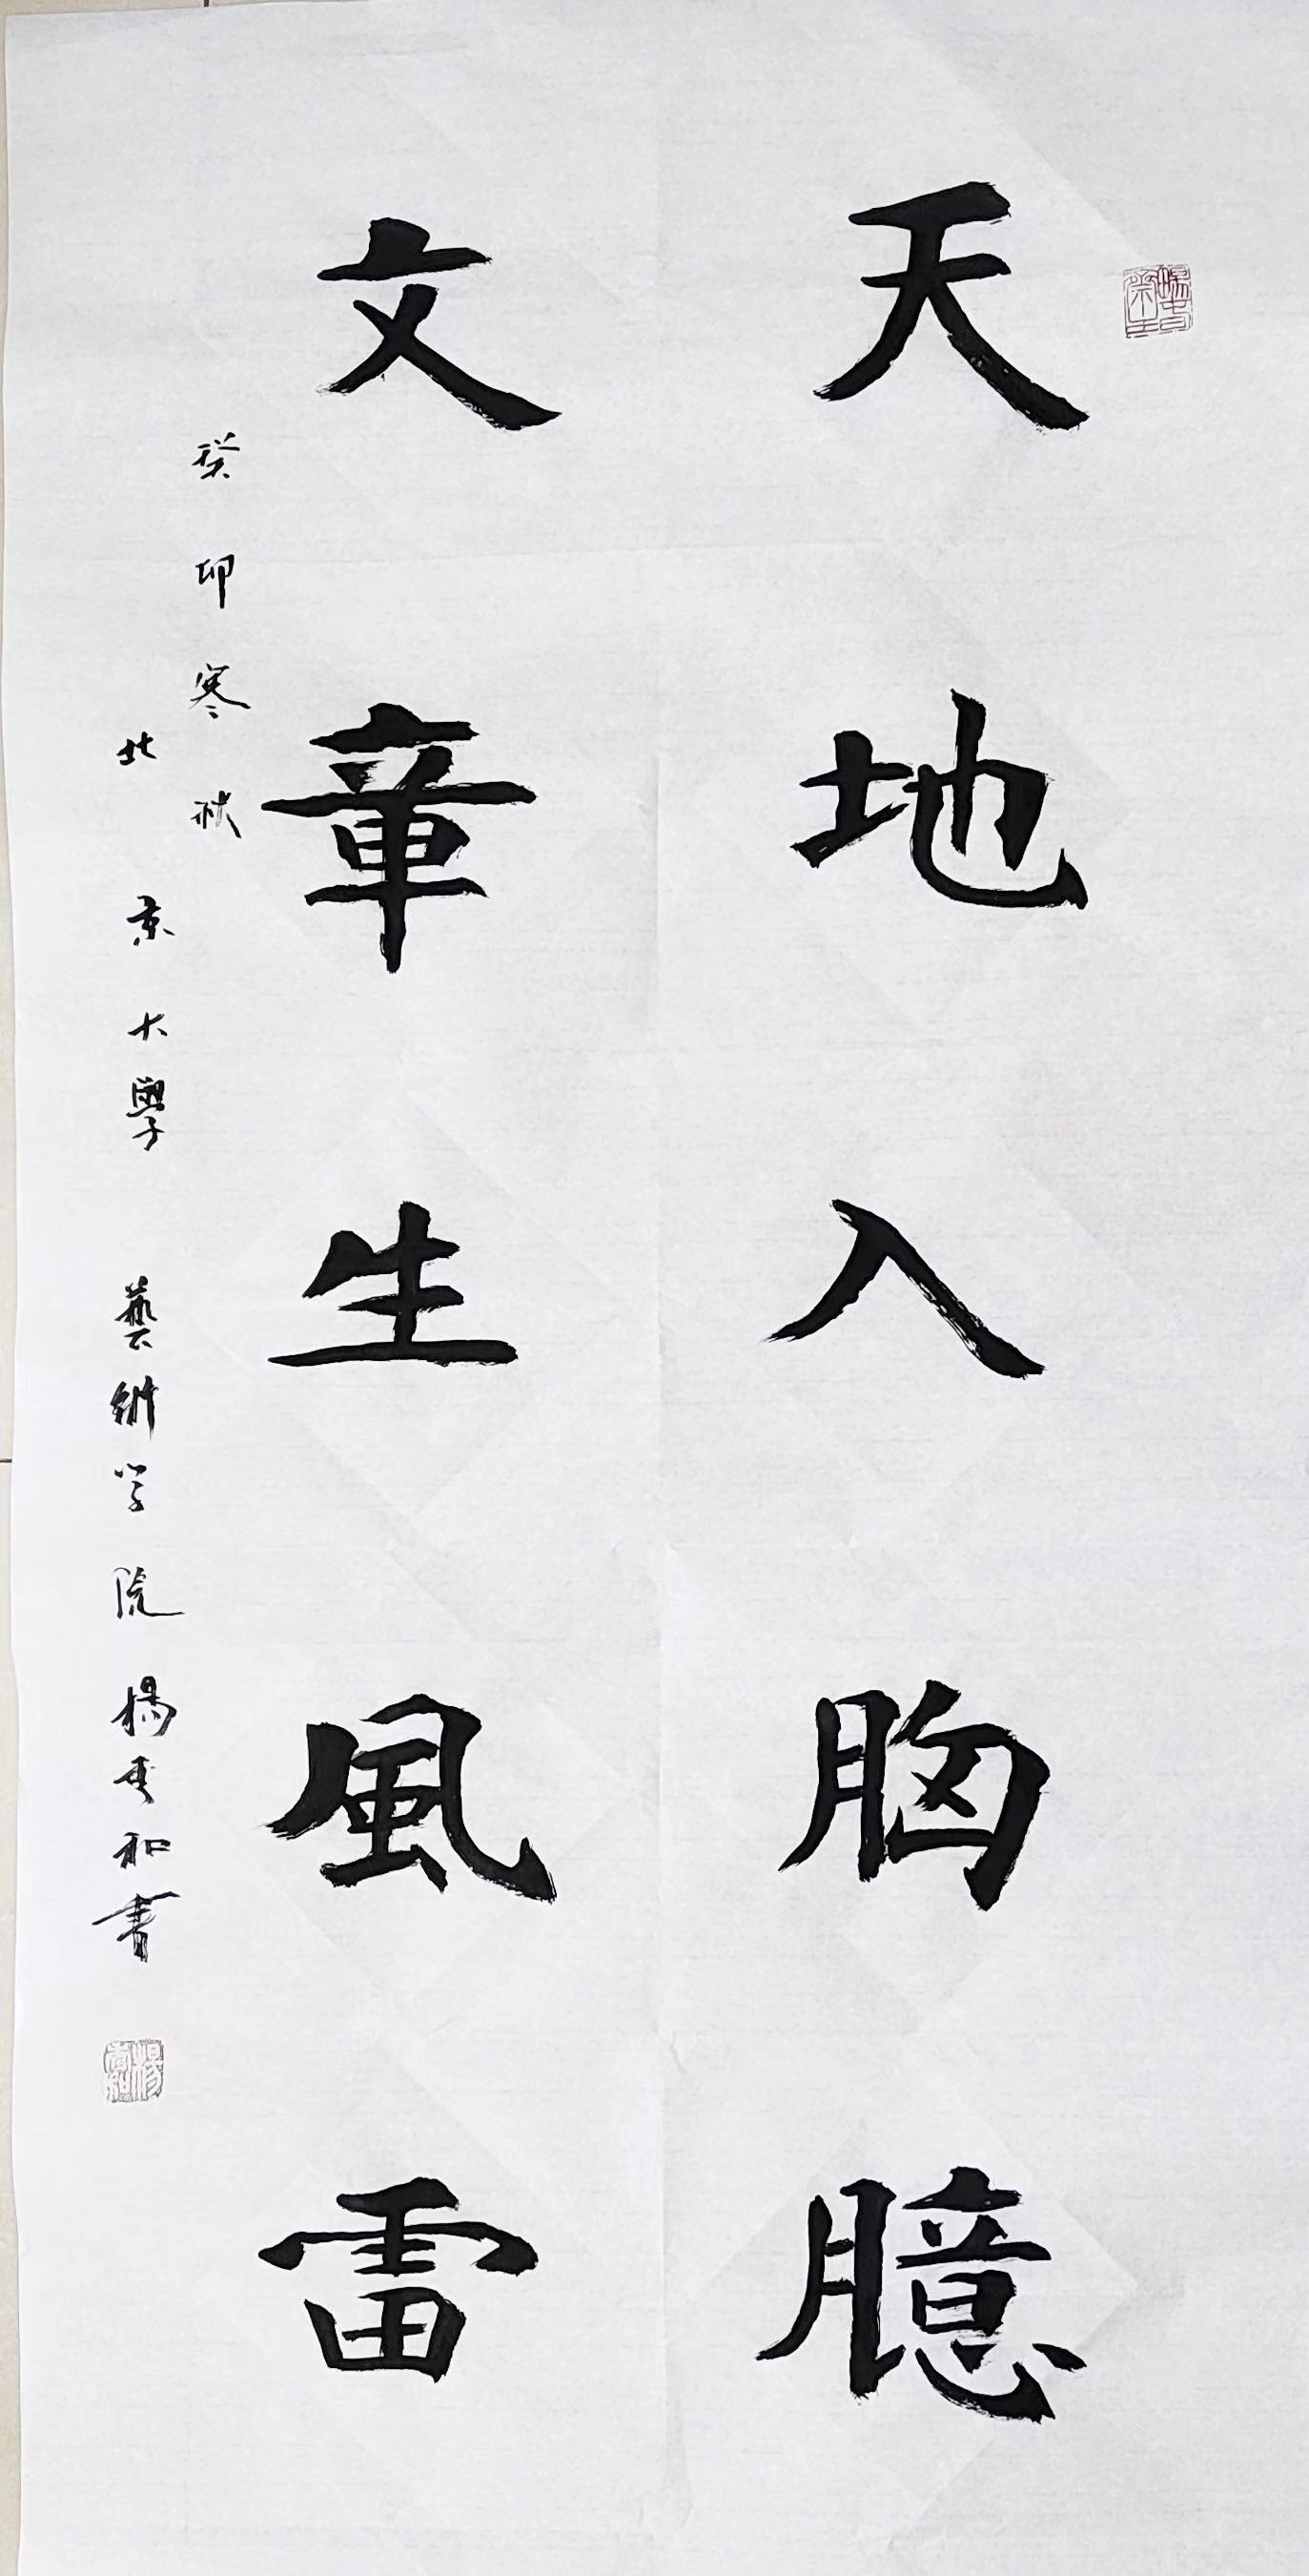 天地入胸臆
文章生風雷
癸卯寒秋
北京大學藝術学院楊春和書